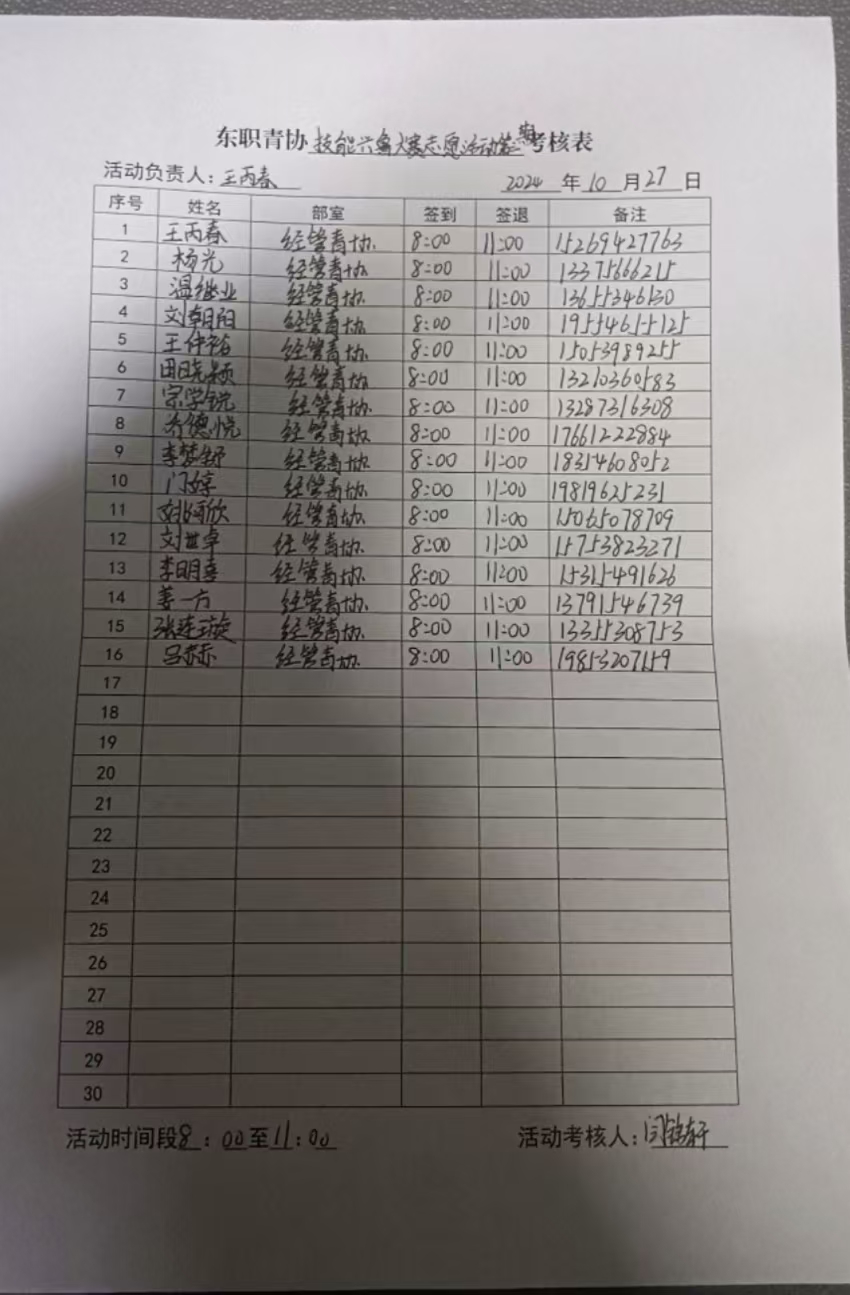 东职青协技能兴鲁大赛志愿活动第二期考核表
活动负责人：王丙春 2024 年 10 月 27 日
序号 姓名 部室 签到 签退 备注
1 王丙春 经管青协 8:00 11:00 15269427763
2 杨光 经管青协 8:00 11:00 13375666215
3 温继业 经管青协 8:00 11:00 13655346530
4 刘朝阳 经管青协 8:00 11:00 19554655125
5 王仲裕 经管青协 8:00 11:00 15053989255
6 田晓颖 经管青协 8:00 11:00 13210360583
7 宗学锐 经管青协 8:00 11:00 13287316308
8 乔德悦 经管青协 8:00 11:00 17661222884
9 李梦舒 经管青协 8:00 11:00 18314608052
10 门婷 经管青协 8:00 11:00 19819625231
11 姚欣 经管青协 8:00 11:00 15065078709
12 刘世卓 经管青协 8:00 11:00 15753823271
13 李明喜 经管青协 8:00 11:00 15315491626
14 姜一方 经管青协 8:00 11:00 13791546739
15 张连璇 经管青协 8:00 11:00 13355308753
16 吕赫 经管青协 8:00 11:00 19853207159
17
18
19
20
21
22
23
24
25
26
27
28
29
30
活动时间段8：00至11：00 活动考核人：闫轩